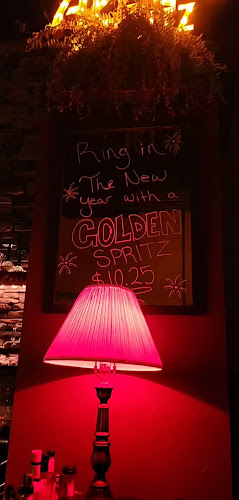 Ring in
The New
year with a
GOLDEN
SPRITZ
$10.25